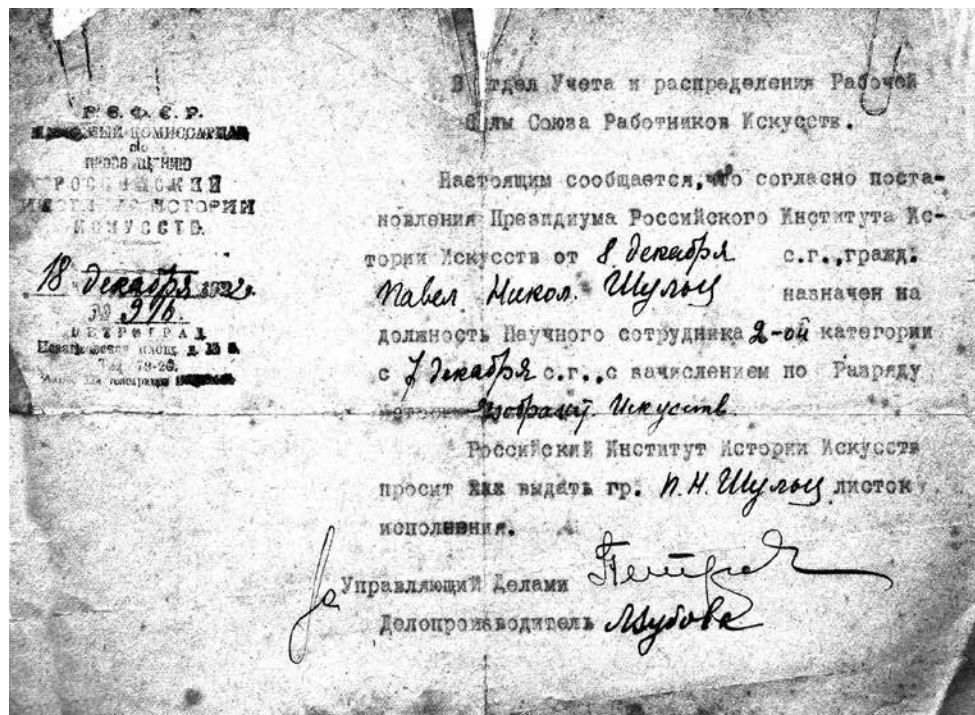 Р. С. Ф. С. Р.
НАРОДНЫЙ КОМИССАРИАТ
по
ПРОСВЕЩЕНИЮ
РОССИЙСКИЙ
ИНСТИТУТ ИСТОРИИ
ИСКУССТВ.
18 декабря 1922 г.
№ 376.
ПЕТРОГРАД
Исаакиевская площ. д.
Тел.
В отдел Учета и распределения Рабочей
Силы Союза Работников Искусств.
Настоящим сообщается, что согласно поста-
новления Президиума Российского Института Ис-
тории Искусств от 8 декабря с.г.,гражд.
Павел Никол. Шульц назначен на
должность Научного сотрудника 2-ой категории
с 7 декабря с.г.,с зачислением по Разряду
Изобразит. Искусств.
Российский Институт Истории Искусств
просит выдать гр. П.Н. Шульц листок
исполнения.
За Управляющий Делами
Делопроизводитель